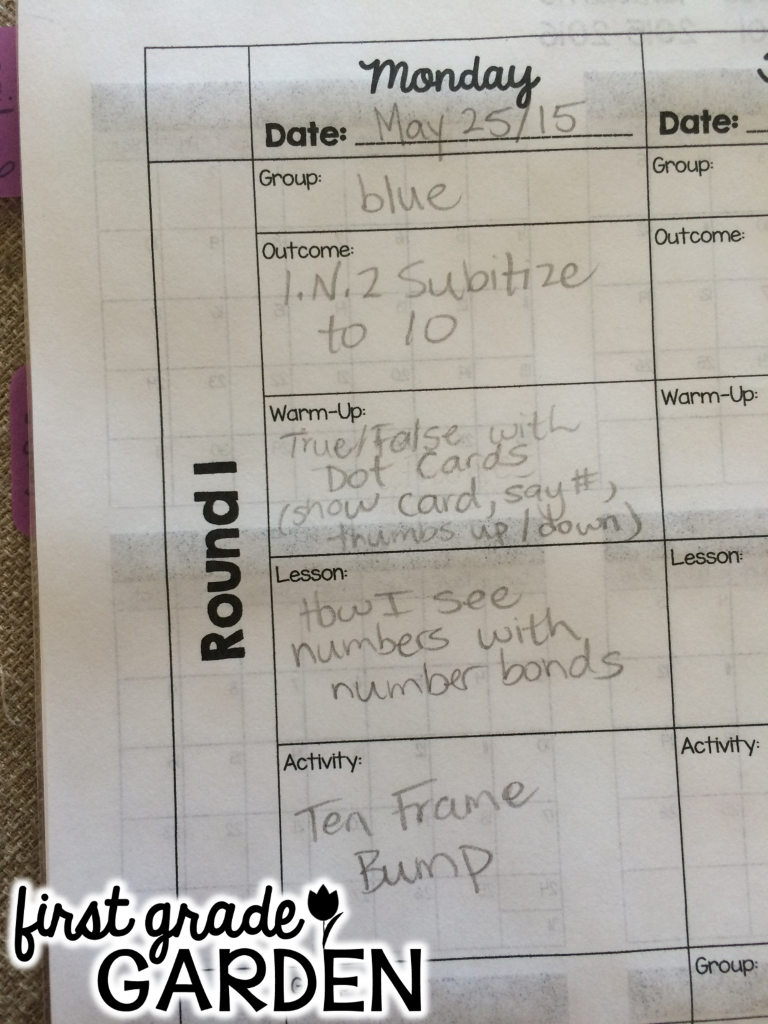 Monday
Date: May 25/15
Date:
Group: blue
Group:
Outcome:
1.N.2 Subitize
to 10
Outcome:
Round 1
Warm-Up:
True/False with
Dot Cards
(show card, say #,
thumbs up/down)
Warm-Up:
Lesson:
How I see
numbers with
number bonds
Lesson:
Activity:
Ten Frame
Bump
Activity:
Group:
first grade
GARDEN
2015-2016